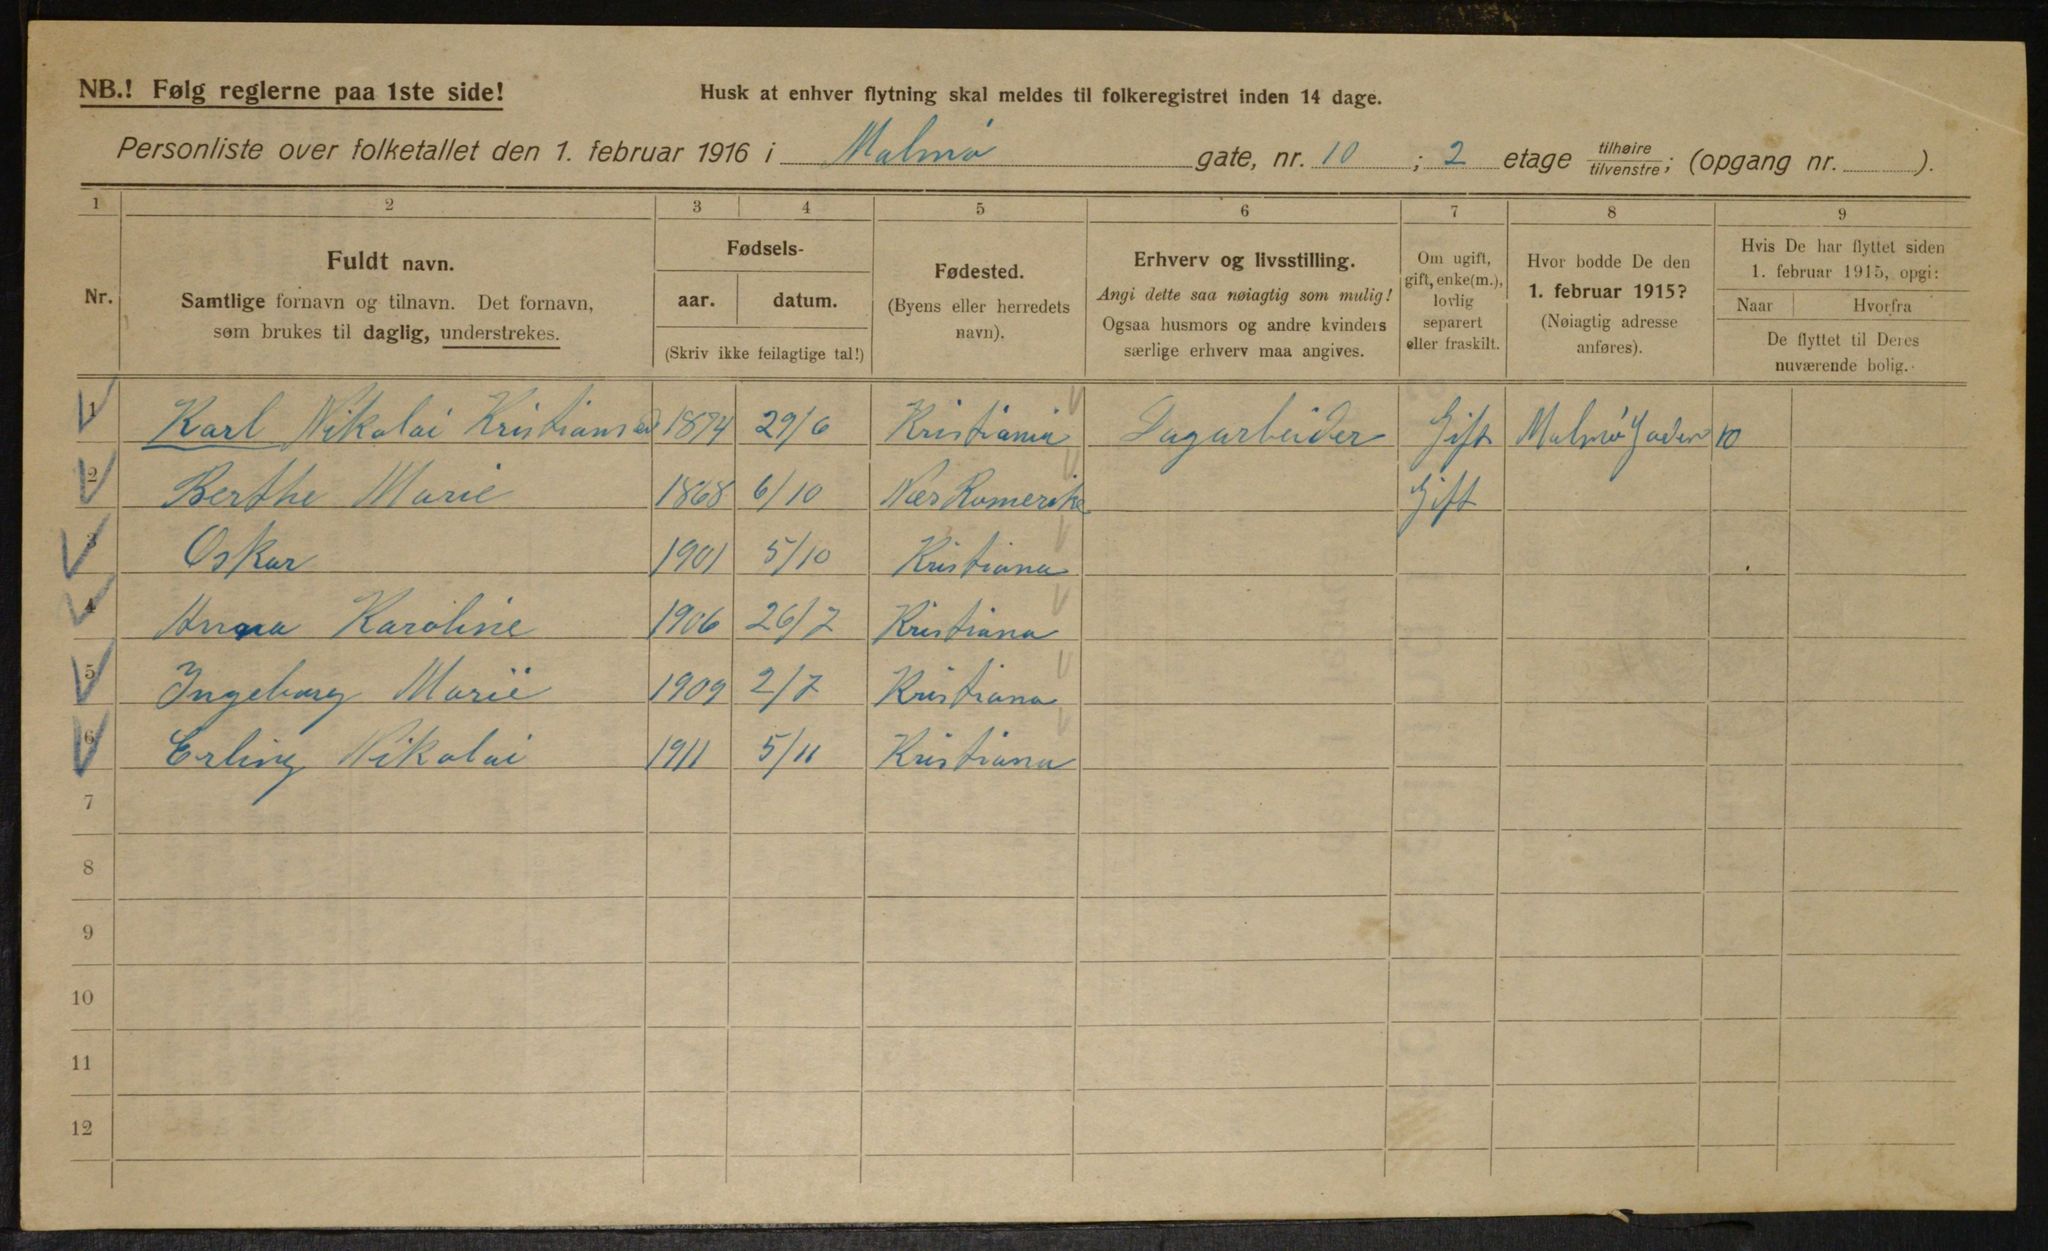 NB.! Følg reglerne paa 1ste side!
Husk at enhver flytning skal meldes til folkeregistret inden 14 dage.
Personliste over folketallet den 1. februar 1916 i Malmø gate, nr. 10 ; 2 etage tilhøire / tilvenstre ; (opgang nr. ).
1 2 3 4 5 6 7 8 9
Nr.
Fuldt navn.
Samtlige fornavn og tilnavn. Det fornavn,
som brukes til daglig, understrekes.
Fødsels-
aar. datum.
(Skriv ikke feilagtige tal!)
Fødested.
(Byens eller herredets
navn).
Erhverv og livsstilling.
Angi dette saa nøiagtig som mulig!
Ogsaa husmors og andre kvinders
særlige erhverv maa angives.
Om ugift,
gift, enke(m.),
lovlig
separert
eller fraskilt.
Hvor bodde De den
1. februar 1915?
(Nøiagtig adresse
anføres).
Hvis De har flyttet siden
1. februar 1915, opgi:
Naar Hvorfra
De flyttet til Deres
nuværende bolig.
1 Karl Nikolai Kristiansen 1874 29/6 Kristiania Dagarbeider Gift Malmø Gaden 10
2 Berthe Marie 1868 6/10 Næs Romerike Gift
3 Oskar 1901 5/10 Kristiana
4 Anna Karoline 1906 26/7 Kristiana
5 Ingeborg Marie 1909 2/7 Kristiana
6 Erling Nikolai 1911 5/11 Kristiana
7
8
9
10
11
12